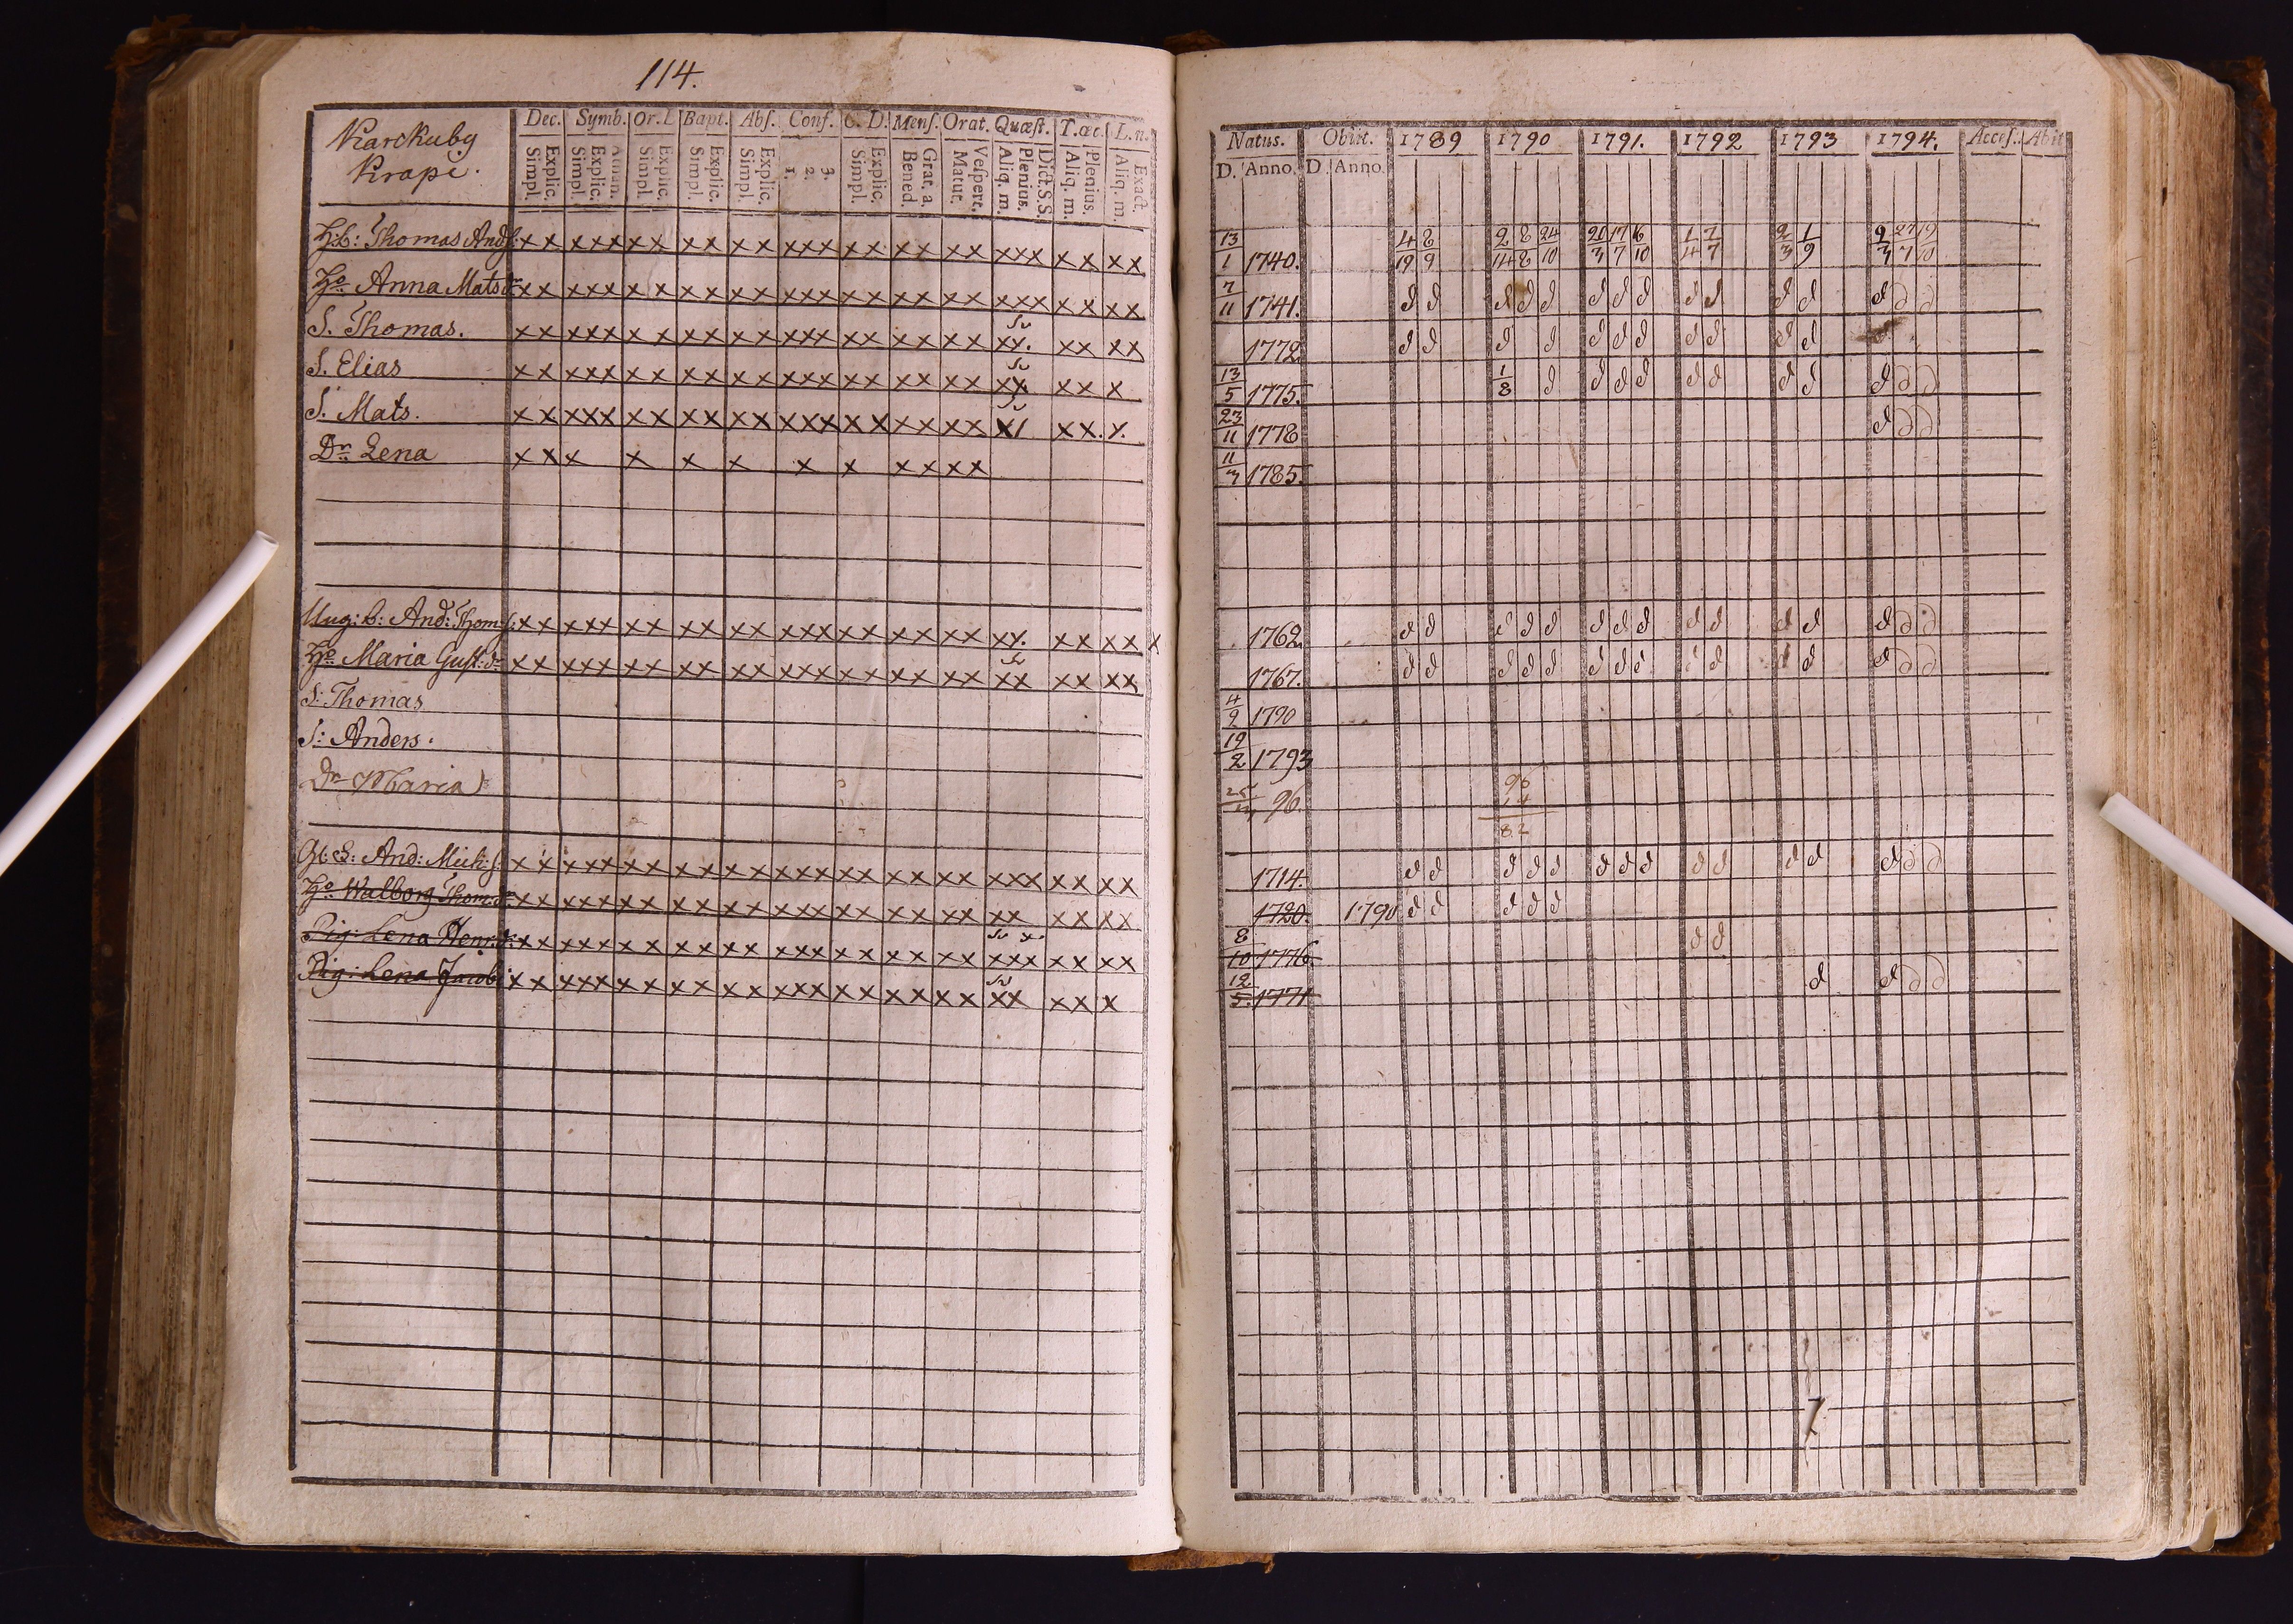 114.
Karckuby
Krapi.
Dec. Symb. Or. L Bapt. Abſ. Conf. C. D. Menſ. Orat. Quæſt. T. œc. L. n.
Explic. Simpl. Athan. Explic. Simpl. Explic. Simpl. Explic. Simpl. Explic. Simpl. 3. 2. 1. Explic. Simpl. Grat. a. Bened. Veſpert. Matut. Dict. S.S. Plenius. Aliq. m. Plenius. Aliq. m. Exact. Aliq. m.
H:b: Thomas And:s: x x x x x x x x x x x x x x x x x x x x x x x x x x x x
Ho Anna Mats dr x x x x x x x x x x x x x x x x x x x x x x x x x x x x
S. Thomas. x x x x x x x x x x x x x x x x x x x x x x x x x x x
S. Elias x x x x x x x x x x x x x x x x x x x x x x x x x x
S. Mats. x x x x x x x x x x x x x x x x x x x x x x x x
Dr Lena x x x x x x x x x x x x x
Ung: b: And: Thom: s: x x x x x x x x x x x x x x x x x x x x x x x x x x x x
Ho Maria Gust: dr x x x x x x x x x x x x x x x x x x x x x x x x x x x
S: Thomas
S: Anders.
Dr Maria
Gl: b: And: Mich: s: x x x x x x x x x x x x x x x x x x x x x x x x x x x x
Ho Walborg Thom: dr x x x x x x x x x x x x x x x x x x x x x x x x x x x
Pig: Lena Henr: dr x x x x x x x x x x x x x x x x x x x x x x x x x x x x
Pig: Lena Jacob: x x x x x x x x x x x x x x x x x x x x x x x x x x
Natus. Obiit. 1789 1790 1791. 1792 1793 1794. Acceſ. Abit
D. Anno. D. Anno.
13/1 1740. 4/19 8/9 2/14 8/8 24/10 20/3 17/7 6/10 1/4 2/7 2/3 1/9 9/3 27/7 19/10
7/11 1741. d d d d d d d d d d d d d d d
1772 d d d d d d d d d d d
13/5 1775. 1/8 d d d d d d d d d d d
23/11 1778 d d d
11/3 1785.
1762 d d d d d d d d d d d d d d d
1767. d d d d d d d d d d d d d d d
4/9 1790
19/2 1793
96.
96
14
82
1714. d d d d d d d d d d d d d d d
1720. 1790 d d d d d
8/10 1776. d d
12/5. 1771 d d d d